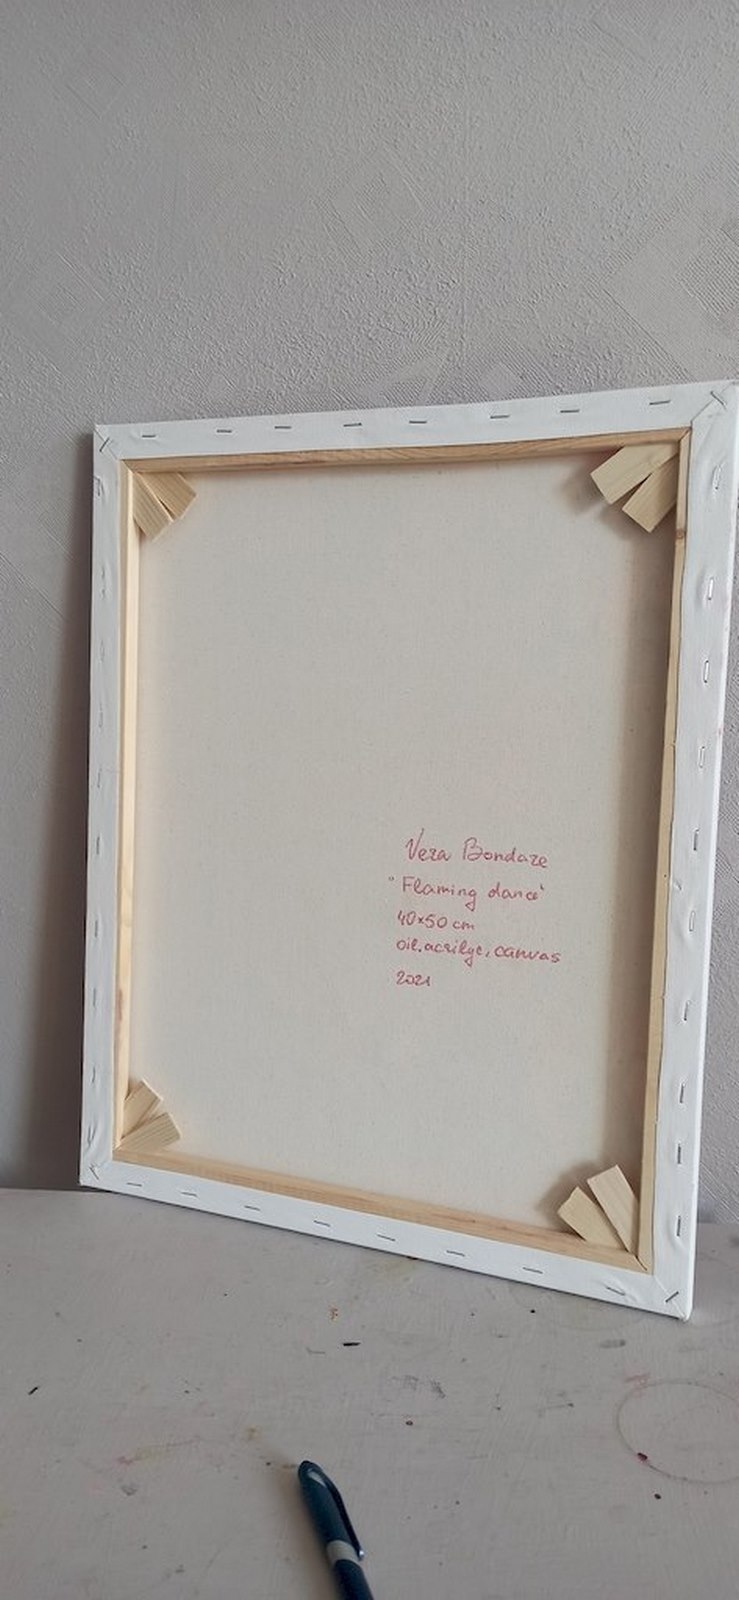 Vera Bondare
"Flaming dance"
40x50 cm
oil, acrilyc, canvas
2021